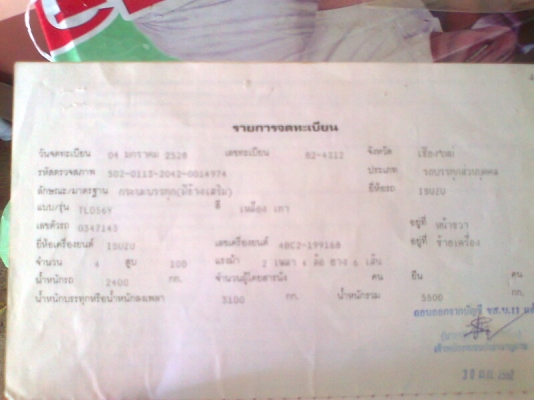 รายการจดทะเบียน
วันจดทะเบียน 04 มกราคม 2528 เลขทะเบียน 82-4312 จังหวัด เชียงใหม่
รหัสตรวจสภาพ 502-0113-2042-0014974 ประเภท รถบรรทุกส่วนบุคคล
ลักษณะ/มาตรฐาน กระบะบรรทุก(มีข้างเสริม) ยี่ห้อรถ ISUZU
แบบ/รุ่น TLD56Y สี เหลือง เทา
เลขตัวรถ 0347143 อยู่ที่ หน้าขวา
ยี่ห้อเครื่องยนต์ ISUZU เลขเครื่องยนต์ 4BC2-199168 อยู่ที่ ซ้ายเครื่อง
จำนวน 4 สูบ 100 แรงม้า 2 เพลา 4 ล้อ ยาง 6 เส้น
น้ำหนักรถ 2400 กก. จำนวนผู้โดยสารนั่ง คน ยืน คน
น้ำหนักบรรทุกหรือน้ำหนักลงเพลา 3100 กก. น้ำหนักรวม 5500 กก.